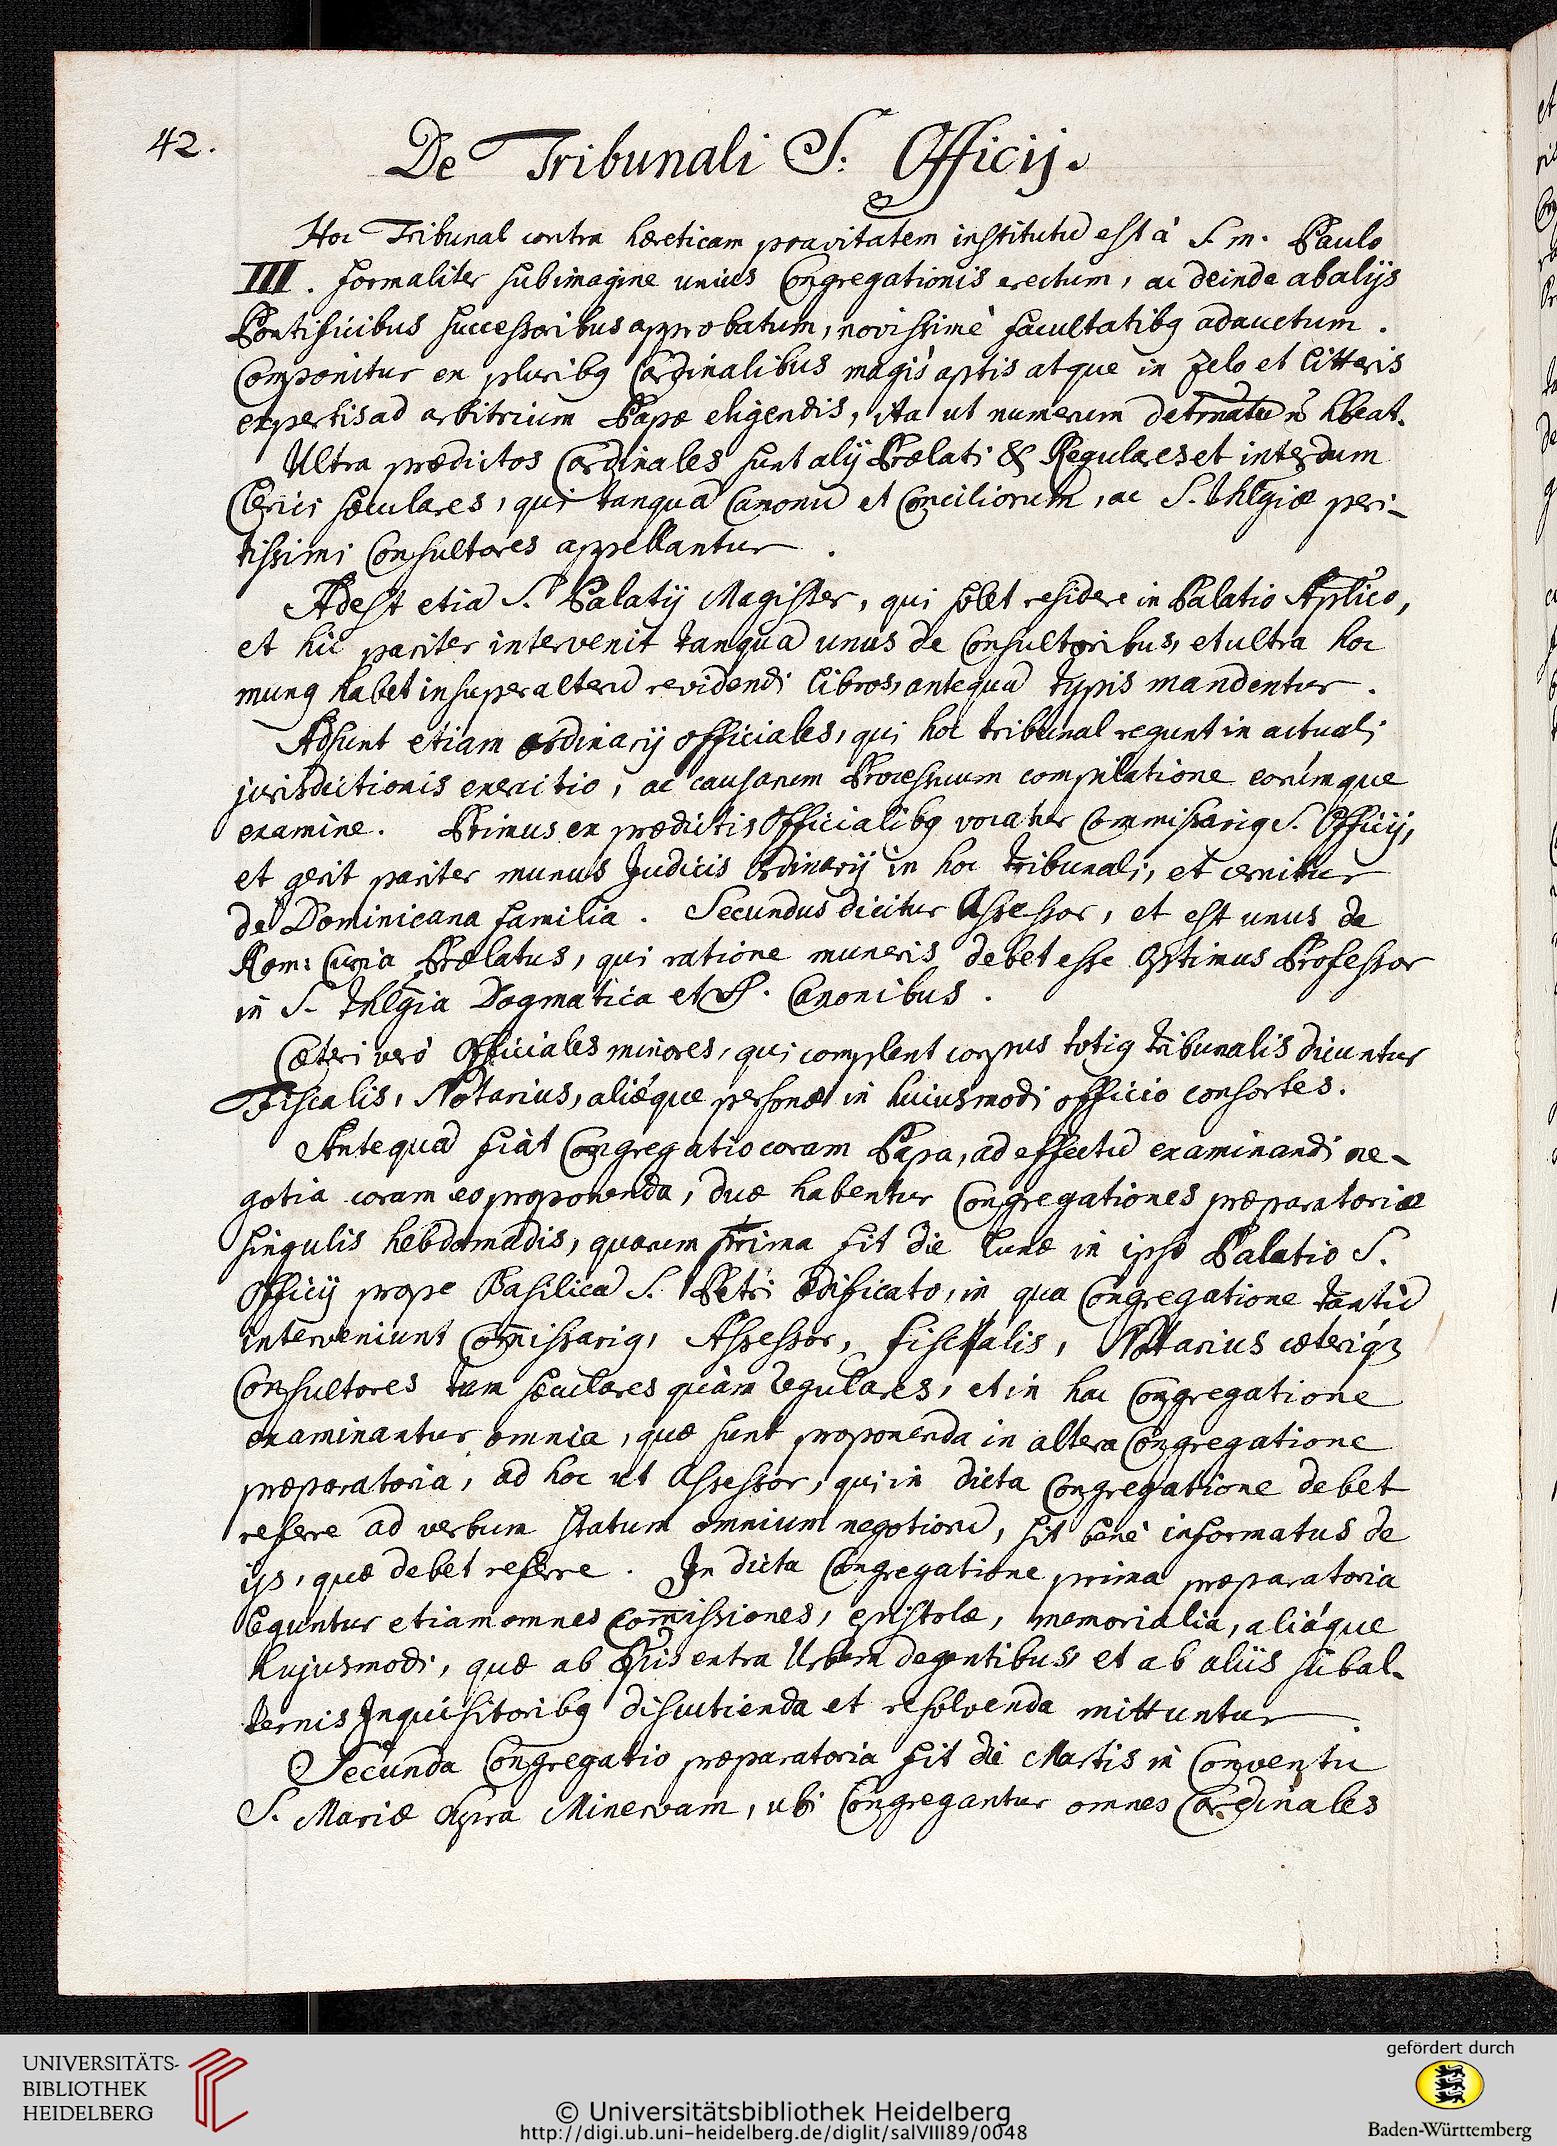 42.
De Tribunali S. Officij.
Hoc Tribunal contra hæreticam pravitatem institutū est à S. m. Paulo
III. formaliter sub imagine unius Congregationis erectum, ac deinde ab alijs
Pontificibus successoribus approbatum, novissimè facultatibq adauctum.
Componitur ex pluribq Cardinalibus magis aptis atque in zelo et litteris
expertis ad arbitrium Papæ eligendis, ita ut numerum detrmatū n̄ hbeat.
Ultra prædictos Cardinales sunt alij Prælati & Regulares et interdum
Clerici sæculares, qui tanquā Canonū et Conciliorum, ac S. thlgiæ peri-
tissimi Consultores appellantur.
Adest etiā S. Palatij Magister, qui solet residere in Palatio Aplico,
et hic pariter intervenit tanquā unus de Consultoribus, et ultra hoc
munq habet insuper alterū revidendi libros, antequā typis mandentur.
Adsunt etiam ordinarij officiales, qui hoc tribunal regunt in actuali
jurisdictionis exercitio, ac causarum Processuum compilatione eorúmque
examine. Primus ex prædictis Officialibq vocatur Commissariq S. Officij,
et gerit pariter munus Judicis Ordinarij in hoc tribunali, et cernitur
de Dominicana familia. Secundus dicitur Assessor, et est unus de
Rom: Curia Prælatus, qui ratione muneris debet esse optimus Professor
in S. thlgia Dogmatica et S. Canonibus.
Cæteri verò Officiales minores, qui complent corpus totiq tribunalis dicuntur
Fiscalis, Notarius, aliæque personæ in huiusmodi officio consortes.
Antequā fiat Congregatio coram Papa, ad effectū examinandi ne-
gotia coram eo proponenda, duæ habentur Congregationes præparatoriæ
singulis hebdomadis, quarum prima fit die lunæ in ipso Palatio S.
Officij prope Basilicā S. Petri ædificato, in qua Congregatione tantū
interveniunt Com̄issariq, Assessor, fiscalis, Notarius cæteriq3
Consultores tam sæculares quàm regulares, et in hac Congregatione
examinantur omnia, quæ sunt proponenda in altera Congregatione
præparatoria, ad hoc ut Assessor, qui in dicta Congregatione debet
referre ad verbum statum omnium negotiorū, sit benè informatus de
ijs, quæ debet referre. In dicta Congregatione prima præparatoria
leguntur etiam omnes com̄issiones, epistolæ, memorialia, aliáque
hujusmodi, quæ ab Ep̄is extra Urbem degentibus, et ab aliis subal-
ternis Inquisitoribq discutienda et resolvenda mittuntur.
Secunda Congregatio præparatoria fit die Martis in Conventu
S. Mariæ supra Minervam, ubi Congregantur omnes Cardinales
UNIVERSITÄTS-
BIBLIOTHEK
HEIDELBERG
© Universitätsbibliothek Heidelberg
http://digi.ub.uni-heidelberg.de/diglit/salVIII89/0048
gefördert durch
Baden-Württemberg